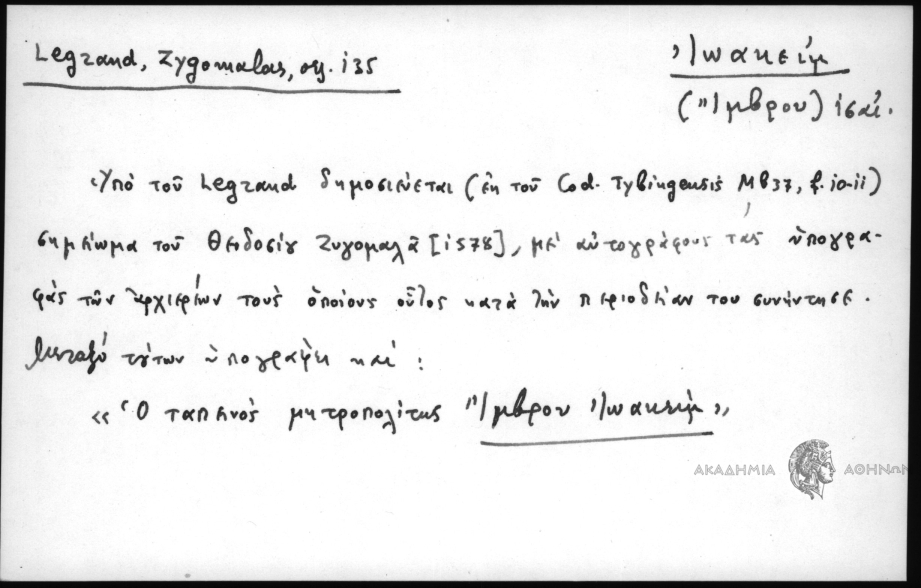 Legrand, Zygomalas, σελ. 135
Ἰωακείμ
(Ἴμβρου) ις' αἰ.
Ὑπὸ τοῦ Legrand δημοσιεύεται (ἐκ τοῦ Cod. Tybingensis Mb37, f. 10-11)
σημείωμα τοῦ Θεοδοσίου Ζυγομαλᾶ [1578], μὲ αὐτογράφους τὰς ὑπογρα-
φὰς τῶν ἀρχιερέων τοὺς ὁποίους οὗτος κατὰ τὴν περιοδείαν του συνήντησε.
Μεταξὺ τούτων ὑπογράφει καὶ:
«Ὁ ταπεινὸς μητροπολίτης Ἴμβρου Ἰωακεὶμ»
ΑΚΑΔΗΜΙΑ ΑΘΗΝΩΝ